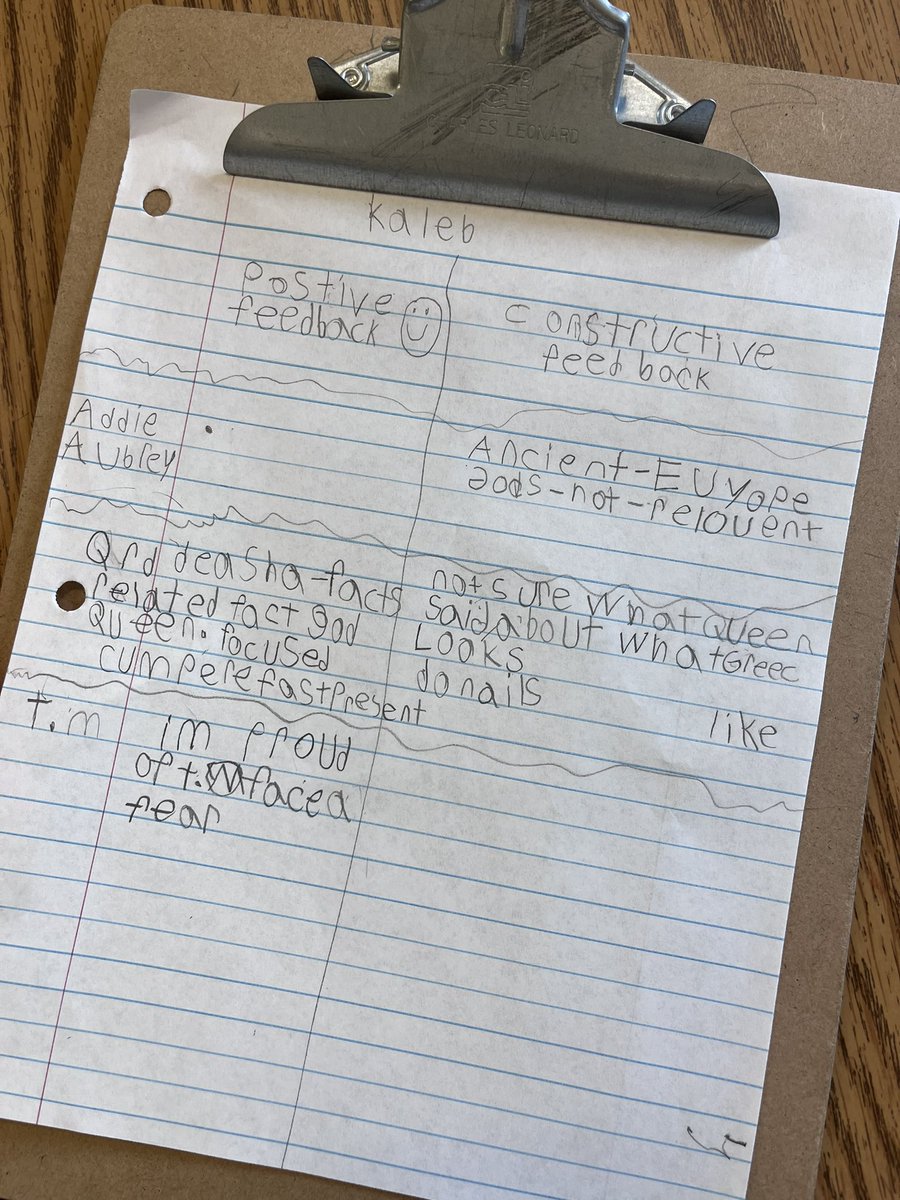 LES LEONARD
Kaleb
Postive
feedback
constructive
feed back
Addie
Aubrey
Ancient-Europe
gods-not-relouent
Qrd deasha-facts
related fact god
Queen. focused
cumperefastpresent
not sure what Queen
said about what Greec
Looks
do nails
like
t.m
im proud
of t.m facea
fear